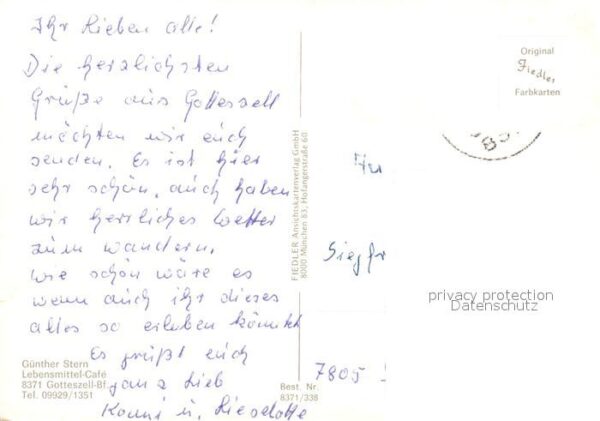 Ihr Lieben alle!
Die herzlichsten
Grüße aus Gotteszell
möchten wir euch
senden. Es ist hier
sehr schön, auch haben
wir herrliches Wetter
zum wandern.
wie schön wäre es
wenn auch ihr dieses
alles so erleben könntet
Es grüßt euch
ganz lieb
Konni u. Lieselotte
Günther Stern
Lebensmittel-Café
8371 Gotteszell-Bf.
Tel. 09929/1351
Best. Nr.
8371/338
FIEDLER Ansichtskartenverlag GmbH
8000 München 63, Hofangerstraße 60
Original
Fiedler
Farbkarten
Siegfr
7805
privacy protection
Datenschutz